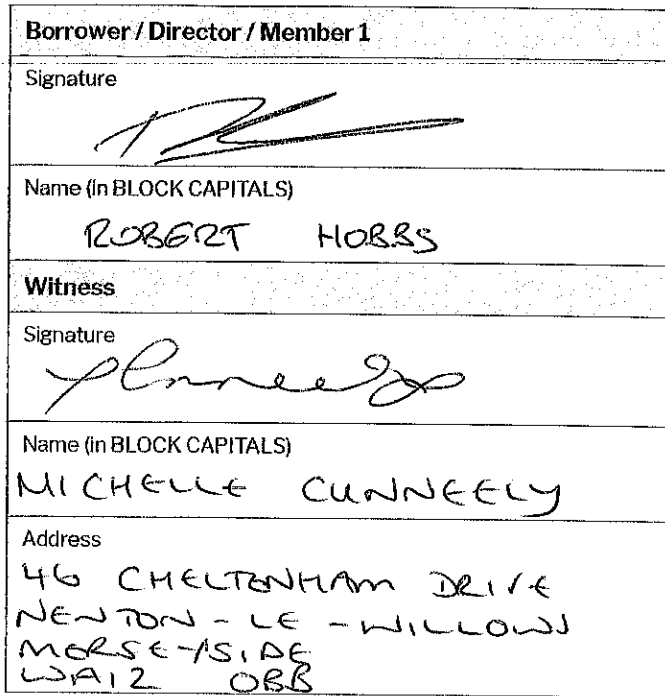 Borrower / Director / Member 1
Signature
Name (in BLOCK CAPITALS)
ROBERT HOBBS
Witness
Signature
Name (in BLOCK CAPITALS)
MICHELLE CUNNEELY
Address
46 CHELTENHAM DRIVE
NEWTON-LE-WILLOWS
MERSEYSIDE
WA12 0BB